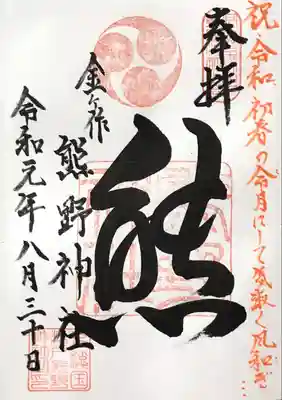 祝 令和 初春の令月にして気淑く風和ぎ…
奉拝
熊
金ケ作
熊野神社
令和元年八月三十日